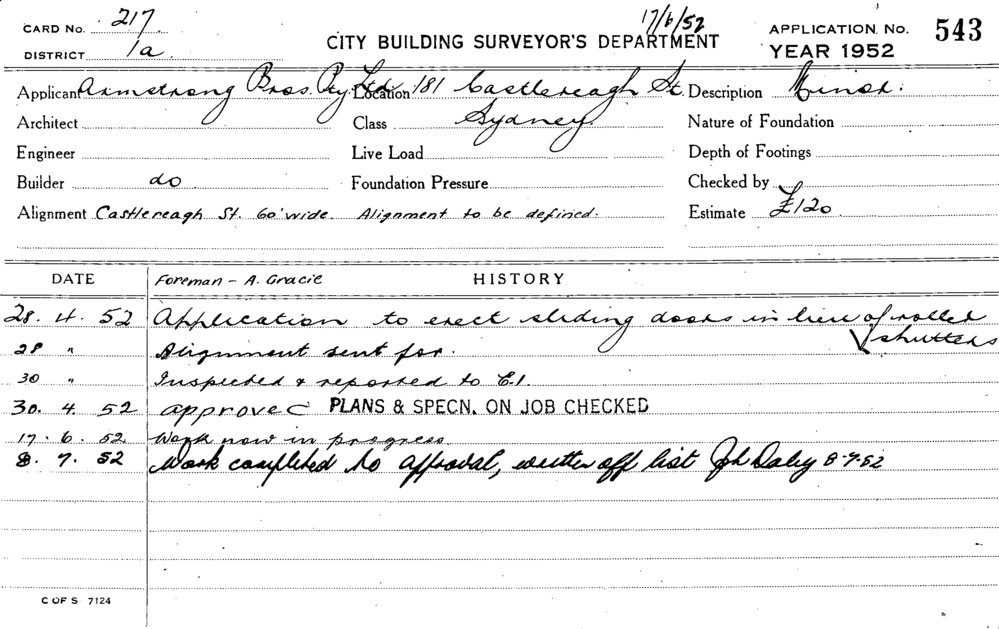 CARD No. 217
17/6/52
APPLICATION No. 543
DISTRICT 1a
CITY BUILDING SURVEYOR'S DEPARTMENT
YEAR 1952
Applicant Armstrong Bros. Pty. Ltd. Location 181 Castlereagh St. Description Minor.
Architect Class Sydney. Nature of Foundation
Engineer Live Load Depth of Footings
Builder do Foundation Pressure Checked by
Alignment Castlereagh St. 60' wide. Alignment to be defined. Estimate £120
DATE Foreman - A. Gracie HISTORY
28. 4. 52 Application to erect sliding doors in lieu of roller
shutters
28 " Alignment sent for.
30 " Inspected & reported to E.I.
30. 4. 52 approved PLANS & SPECN. ON JOB CHECKED
17. 6. 52 Work now in progress.
8. 7. 52 Work completed to approval, written off list Jph Daley 8-7-52
C OF S 7124